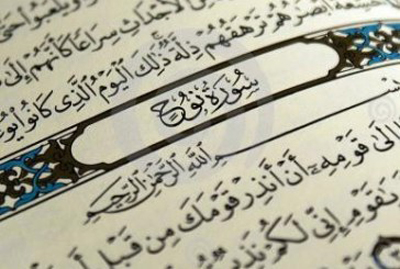 ويلعبوا حتى
الأجداث سراعا كأنهم إلى
أبصرهم ترهقهم ذلة ذلك اليوم الذي كانوا
سُورَةُ نُوحٍ
بسم الله الرحمن الرحيم
إلى قومه أن أنذر قومك من قبل
يقوم إني لكم نذير